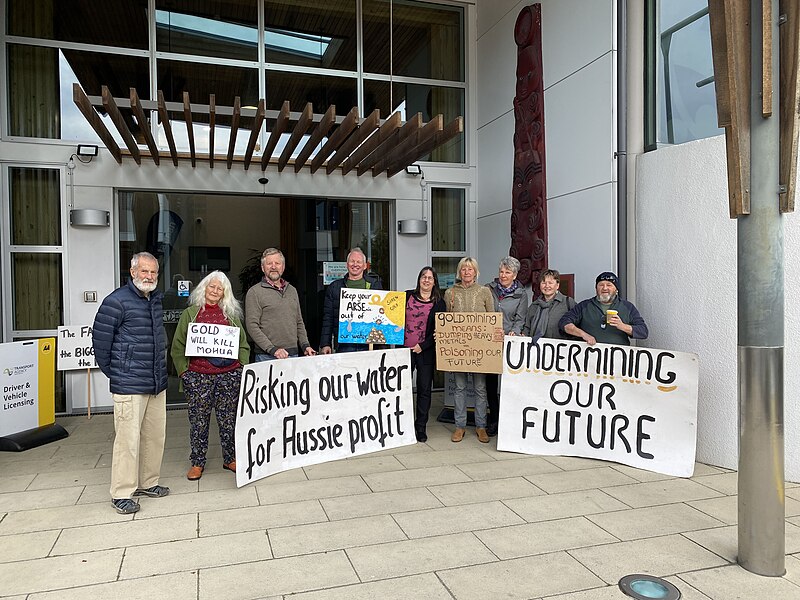 The FA
the BIGG
the
TRANSPORT
AGENCY
Driver &
Vehicle
Licensing
GOLD
WILL KILL
MOHUA
Keep your
ARSE
out of
our wate
Risking our water
for Aussie profit
GOLD MINING
MEANS:
DUMPING HEAVY
METALS =
POISONING OUR
FUTURE
UNDERMINING
OUR
FUTURE